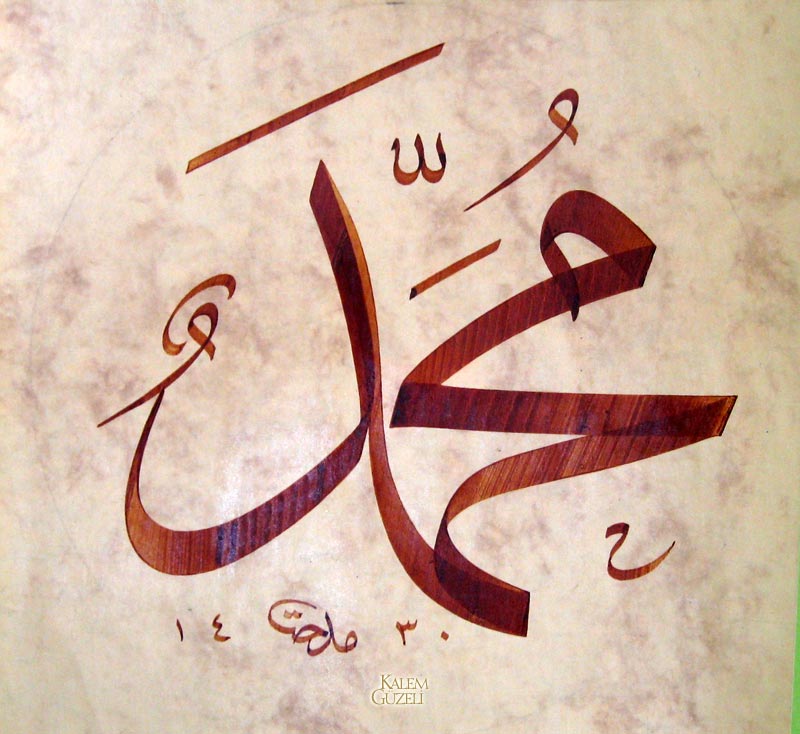 مُحَمَّدٌ
ح
١٤ مدحت ٣٠
KALEM
GÜZELİ